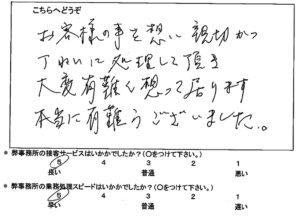 こちらへどうぞ
お客様の事を想い 親切かつ
丁ねいに処理して頂き
大変有難く想って居ります
本当に有難うございました。
* 弊事務所の接客サービスはいかかでしたか?(〇をつけて下さい。)
5 4 3 2 1
良い 普通 悪い
* 弊事務所の業務処理スピードはいかかでしたか?(〇をつけて下さい。)
5 4 3 2 1
早い 普通 遅い